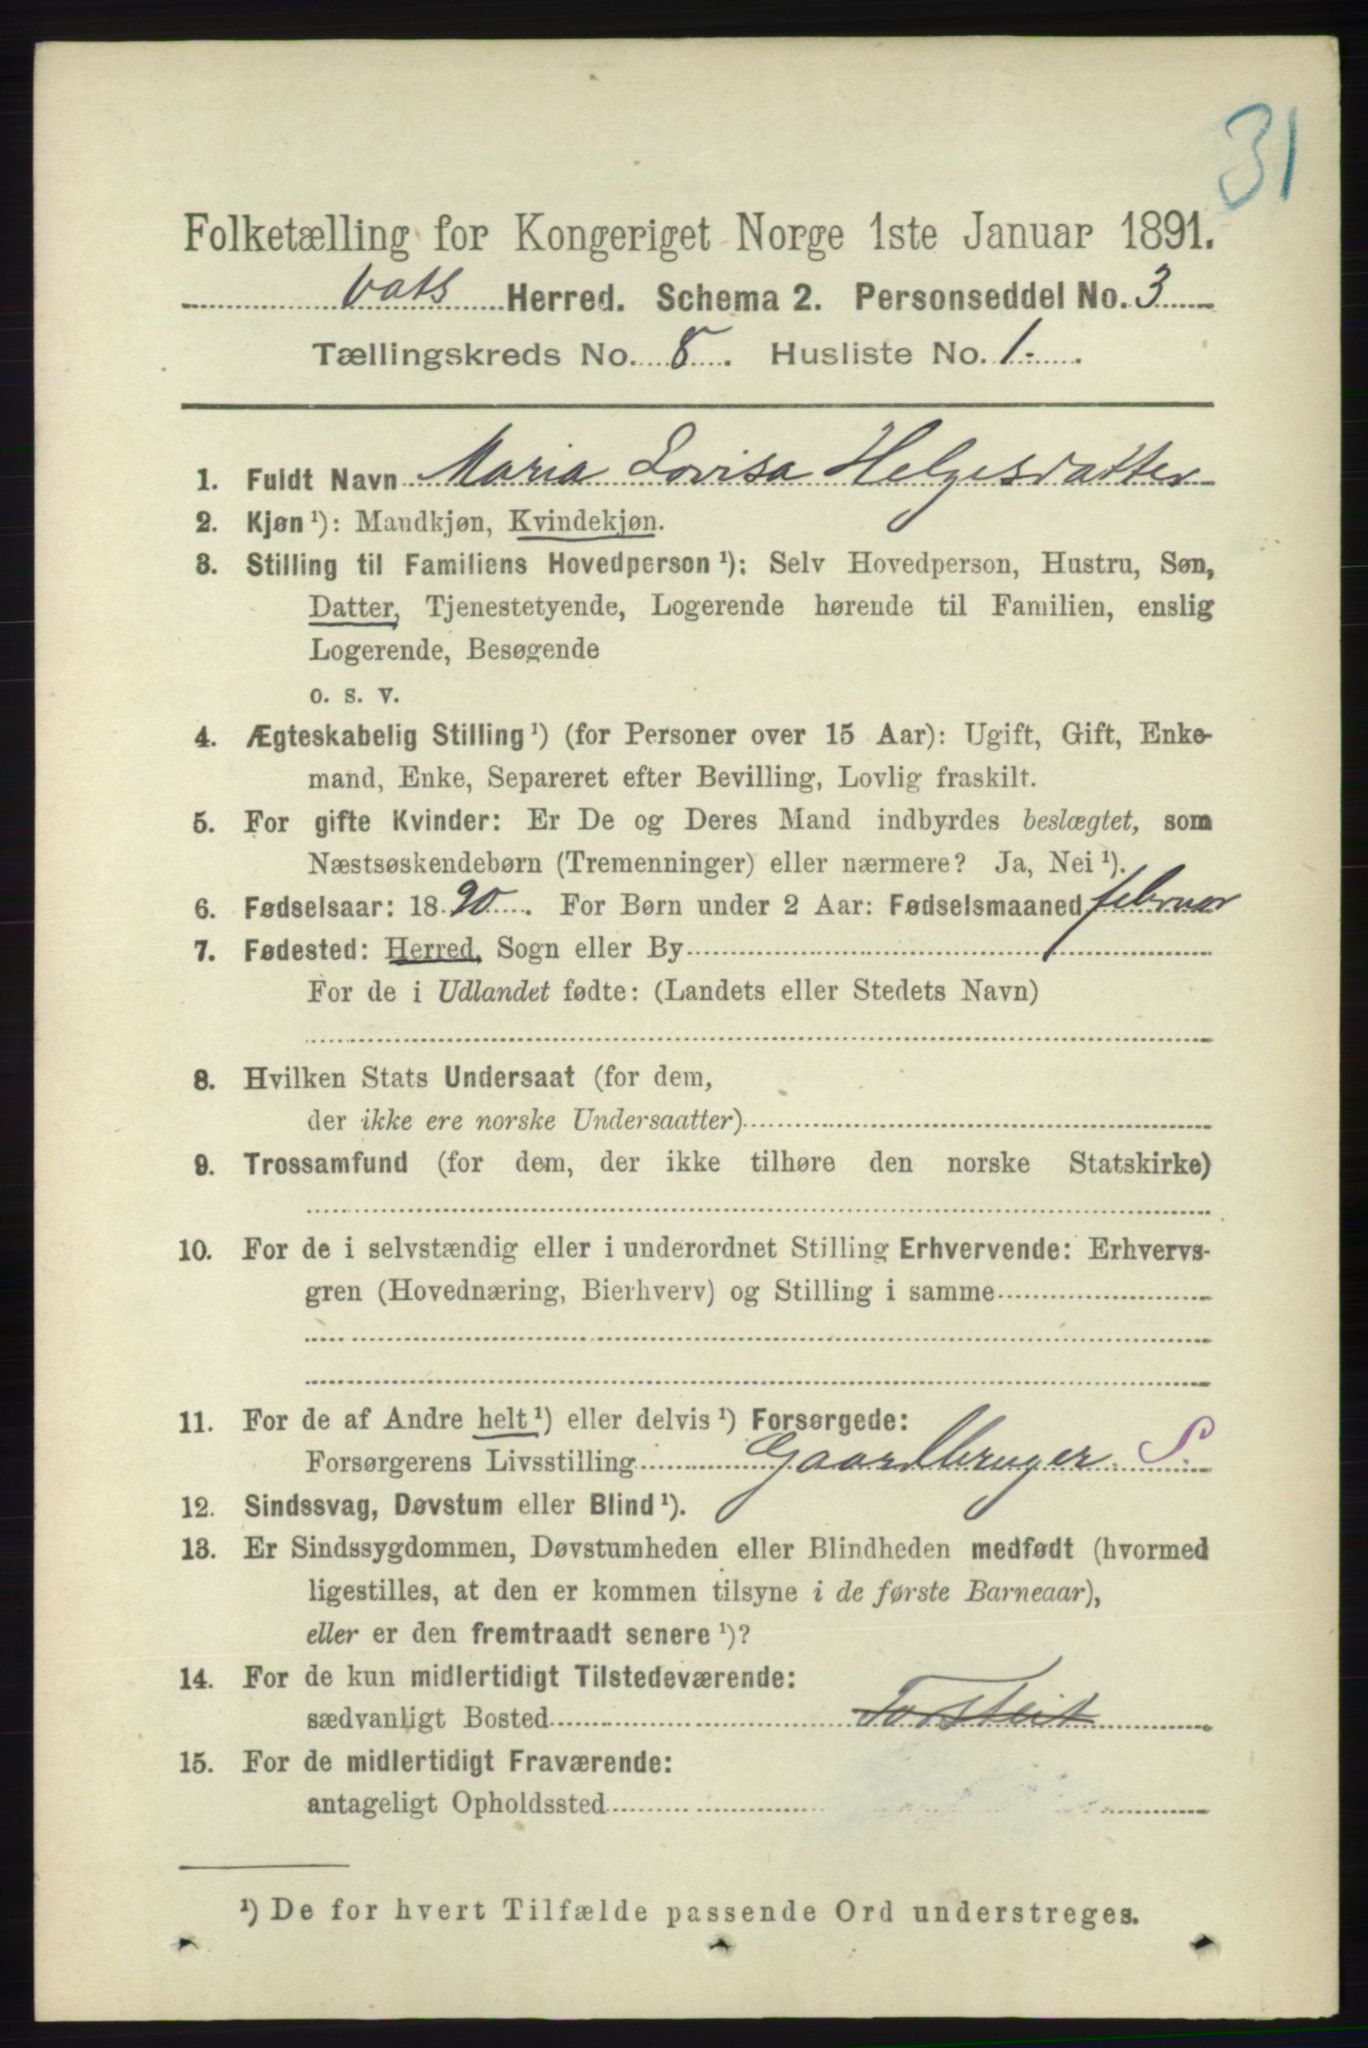 31
Folketælling for Kongeriget Norge 1ste Januar 1891.
Vats Herred. Schema 2. Personseddel No. 3
Tællingskreds No. 8. Husliste No. 1.
1. Fuldt Navn Maria Lovisa Helgesdatter
2. Kjøn ¹): Mandkjøn, Kvindekjøn.
3. Stilling til Familiens Hovedperson ¹): Selv Hovedperson, Hustru, Søn,
Datter, Tjenestetyende, Logerende hørende til Familien, enslig
Logerende, Besøgende
o. s. v.
4. Ægteskabelig Stilling ¹) (for Personer over 15 Aar): Ugift, Gift, Enke-
mand, Enke, Separeret efter Bevilling, Lovlig fraskilt.
5. For gifte Kvinder: Er De og Deres Mand indbyrdes beslægtet, som
Næstsøskendebørn (Tremenninger) eller nærmere? Ja, Nei ¹).
6. Fødselsaar: 1890. For Børn under 2 Aar: Fødselsmaaned februar
7. Fødested: Herred, Sogn eller By
For de i Udlandet fødte: (Landets eller Stedets Navn)
8. Hvilken Stats Undersaat (for dem,
der ikke ere norske Undersaatter)
9. Trossamfund (for dem, der ikke tilhøre den norske Statskirke)
10. For de i selvstændig eller i underordnet Stilling Erhvervende: Erhvervs-
gren (Hovednæring, Bierhverv) og Stilling i samme
11. For de af Andre helt ¹) eller delvis ¹) Forsørgede:
Forsørgerens Livsstilling Gaardbruger S.
12. Sindssvag, Døvstum eller Blind ¹).
13. Er Sindssygdommen, Døvstumheden eller Blindheden medfødt (hvormed
ligestilles, at den er kommen tilsyne i de første Barneaar),
eller er den fremtraadt senere ¹)?
14. For de kun midlertidigt Tilstedeværende:
sædvanligt Bosted Torsteit
15. For de midlertidigt Fraværende:
antageligt Opholdssted
¹) De for hvert Tilfælde passende Ord understreges.